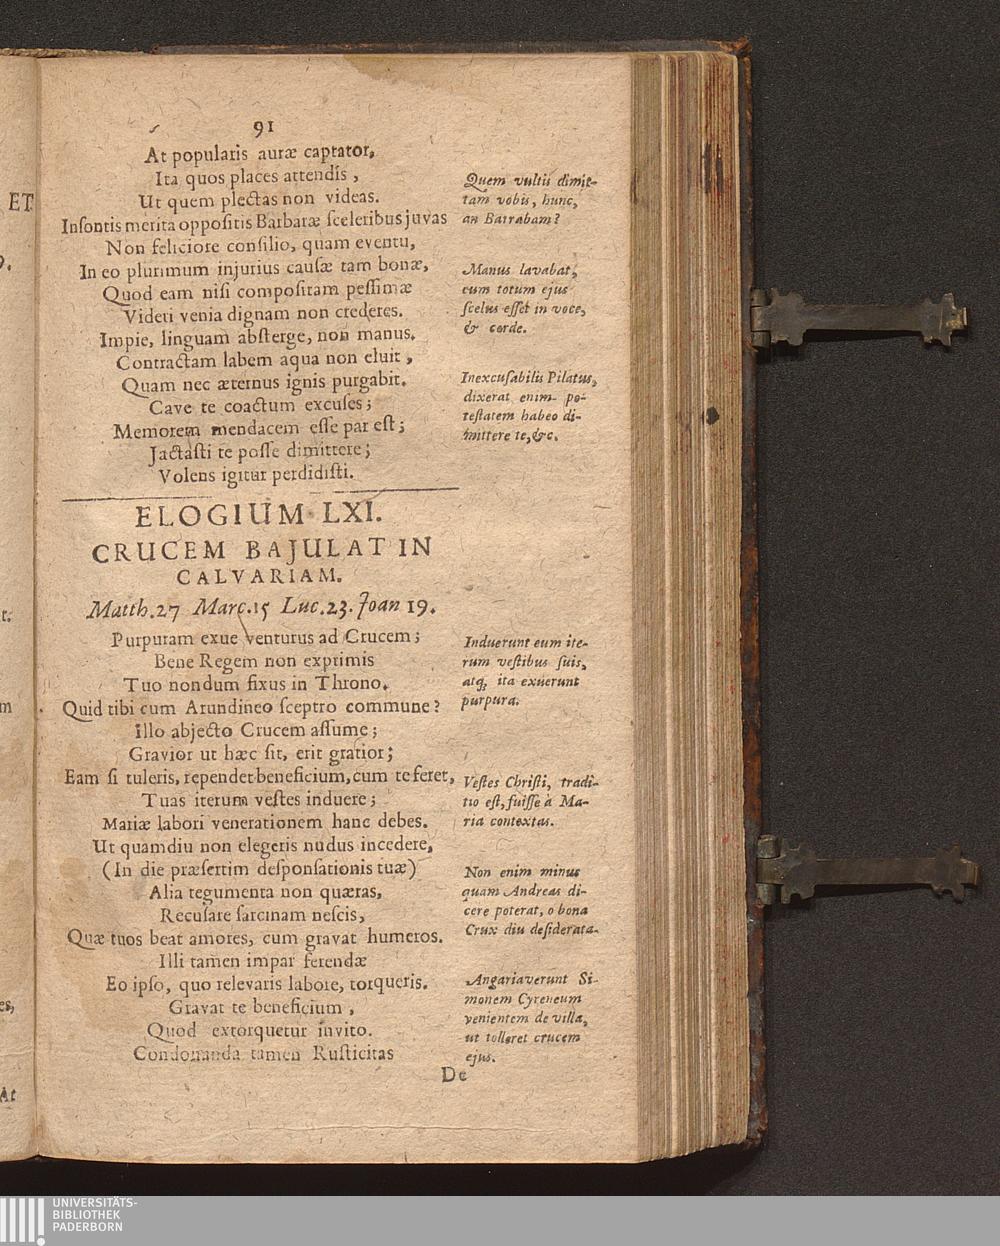 91
At popularis auræ captator,
Ita quos places attendis,
Ut quem plectas non videas.
Insontis merita oppositis Barbaræ sceleribus juvas
Non feliciore consilio, quam eventu,
In eo plurimum injurius causæ tam bonæ,
Quod eam nisi compositam pessimæ
Videri venia dignam non crederes.
Impie, linguam absterge, non manus.
Contractam labem aqua non eluit,
Quam nec æternus ignis purgabit.
Cave te coactum excuses;
Memorem mendacem esse par est;
Jactasti te posse dimittere;
Volens igitur perdidisti.
Quem vultis dimit-
tam vobis, hunc,
an Barrabam?
Manus lavabat,
cum totum ejus
scelus esset in voce,
& corde.
Inexcusabilis Pilatus,
dixerat enim- po-
testatem habeo di-
mittere te, &c.
ELOGIUM LXI.
CRUCEM BAJULAT IN
CALVARIAM.
Matth.27 Marc.15 Luc.23. Joan 19.
Purpuram exue venturus ad Crucem;
Bene Regem non exprimis
Tuo nondum fixus in Throno.
Quid tibi cum Arundineo sceptro commune?
Illo abjecto Crucem assume;
Gravior ut hæc sit, erit gratior;
Eam si tuleris, rependet beneficium, cum te feret,
Tuas iterum vestes induere;
Mariæ labori venerationem hanc debes.
Ut quamdiu non elegeris nudus incedere,
(In die præsertim desponsationis tuæ)
Alia tegumenta non quæras,
Recusare sarcinam nescis,
Quæ tuos beat amores, cum gravat humeros.
Illi tamen impar ferendæ
Eo ipso, quo relevaris labore, torqueris.
Gravat te beneficium,
Quod extorquetur invito.
Condonanda tamen Rusticitas
Induerunt eum ite-
rum vestibus suis,
atq; ita exuerunt
purpura.
Vestes Christi, tradi-
tio est, fuisse à Ma-
ria contextas.
Non enim minus
quam Andreas di-
cere poterat, o bona
Crux diu desiderata.
Angariaverunt Si-
monem Cyreneum
venientem de villa,
ut tolleret crucem
ejus.
De
ET
9.
t.
m
es,
At
UNIVERSITÄTS-
BIBLIOTHEK
PADERBORN